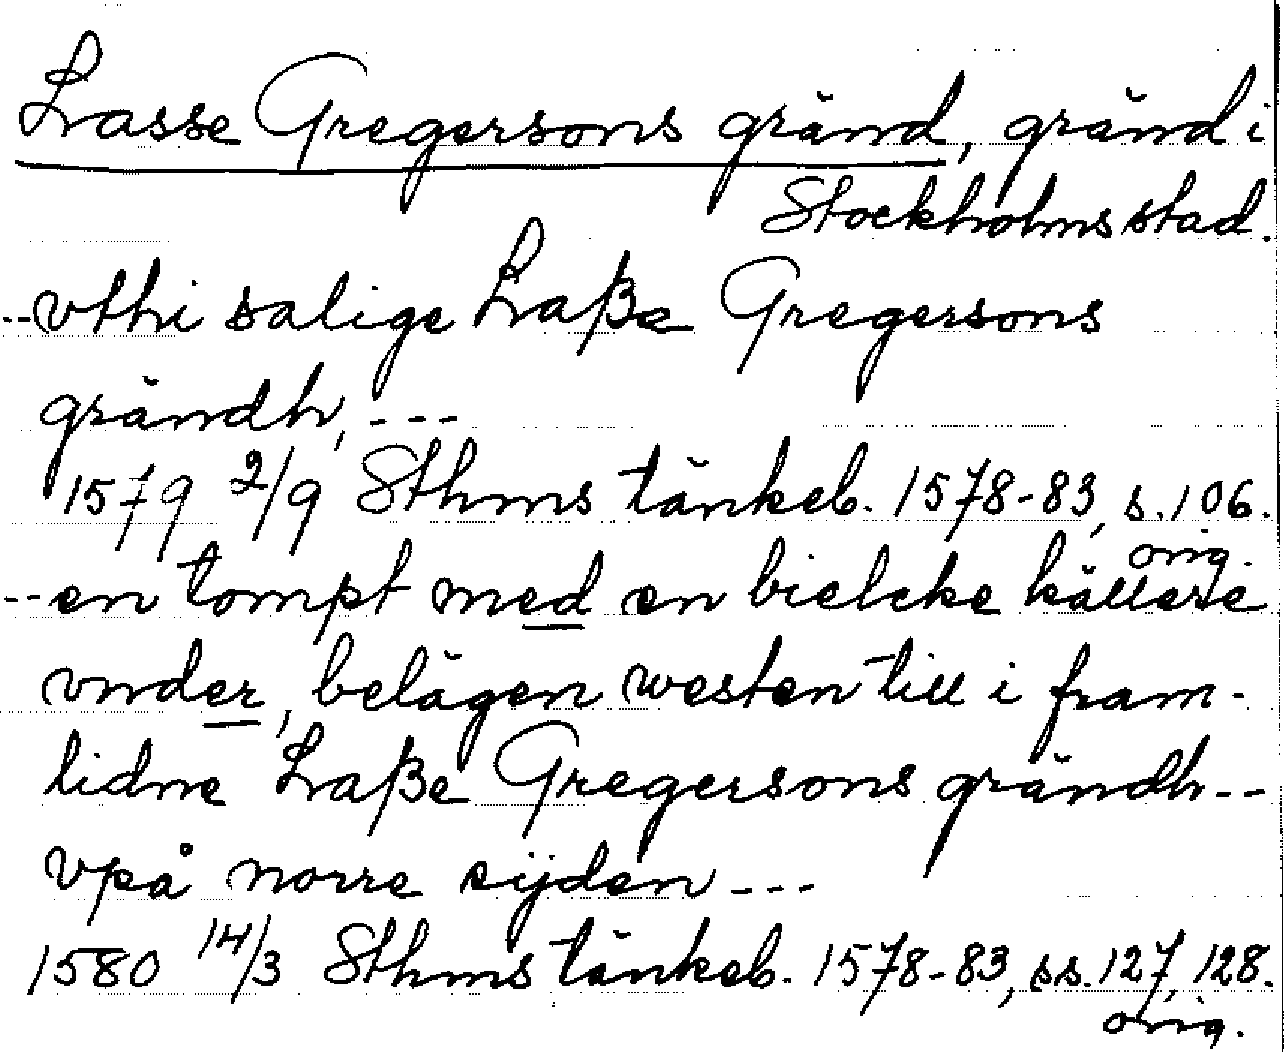 Lasse Gregersons gränd, gränd i
Stockholms stad.
--vthi salige Laße Gregersons
grändh, ---
1579 2/9 Sthms tänkeb. 1578-83, s. 106.
orig.
--en tompt med en bielcke källere
vnder, belägen westen till i fram-
lidne Laße Gregersons grändh--
vpå norre sijden ---
1580 14/3 Sthms tänkeb. 1578-83, ss. 127, 128.
orig.